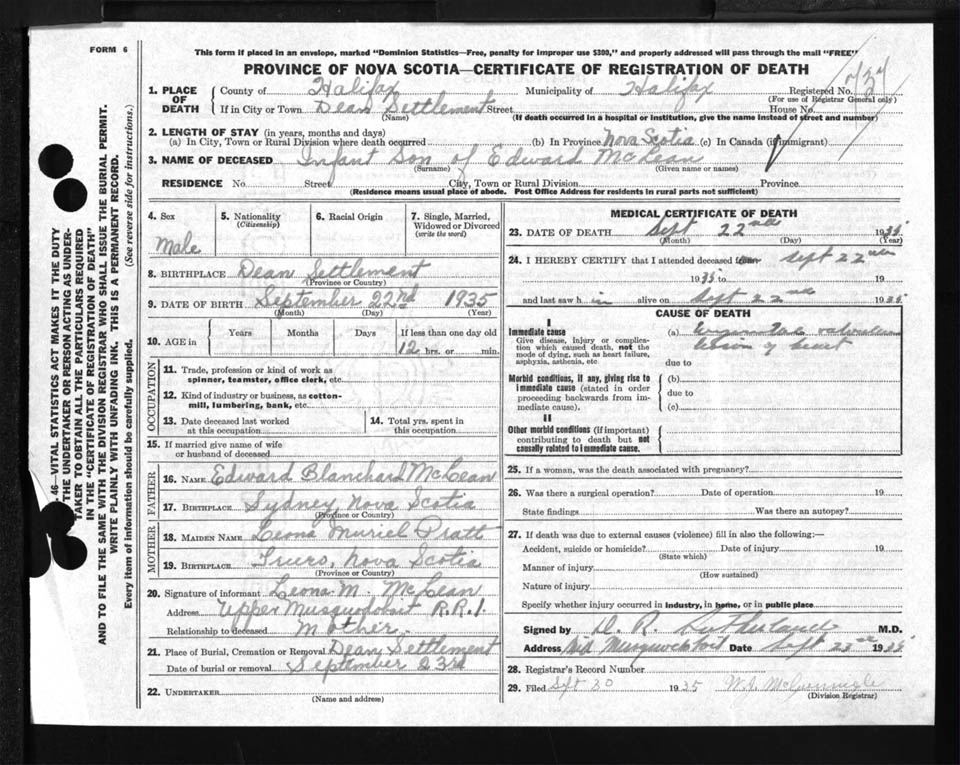 FORM 6
This form if placed in an envelope, marked "Dominion Statistics—Free, penalty for improper use $300," and properly addressed will pass through the mail "FREE"
PROVINCE OF NOVA SCOTIA—CERTIFICATE OF REGISTRATION OF DEATH
1. PLACE OF DEATH
County of Halifax Municipality of Halifax Registered No.
(For use of Registrar General only)
If in City or Town Dean Settlement Street House No.
(Name) (If death occurred in a hospital or institution, give the name instead of street and number)
2. LENGTH OF STAY (in years, months and days)
(a) In City, Town or Rural Division where death occurred (b) In Province Nova Scotia (c) In Canada (if immigrant)
3. NAME OF DECEASED Infant Son of Edward McLean
(Surname) (Given name or names)
RESIDENCE No Street City, Town or Rural Division Province
(Residence means usual place of abode. Post Office Address for residents in rural parts not sufficient)
4. Sex
Male
5. Nationality
(Citizenship)
6. Racial Origin
7. Single, Married, Widowed or Divorced
(write the word)
8. BIRTHPLACE Dean Settlement
(Province or Country)
9. DATE OF BIRTH September 22nd 1935
(Month) (Day) (Year)
10. AGE in
Years Months Days If less than one day old
12 hrs. or min.
OCCUPATION
11. Trade, profession or kind of work as
spinner, teamster, office clerk, etc.
12. Kind of industry or business, as cotton-
mill, lumbering, bank, etc.
13. Date deceased last worked
at this occupation
14. Total yrs. spent in
this occupation
15. If married give name of wife
or husband of deceased
FATHER
16. NAME Edward Blanchard McLean
17. BIRTHPLACE Sydney Nova Scotia
(Province or Country)
MOTHER
18. MAIDEN NAME Leona Muriel Pratt
19. BIRTHPLACE Truro, Nova Scotia
(Province or Country)
20. Signature of informant Leona M. McLean
Address Upper Musquodoboit R.R.1
Relationship to deceased mother.
21. Place of Burial, Cremation or Removal Dean Settlement
Date of burial or removal September 23rd
22. UNDERTAKER
(Name and address)
MEDICAL CERTIFICATE OF DEATH
23. DATE OF DEATH Sept 22nd 1935
(Month) (Day) (Year)
24. I HEREBY CERTIFY that I attended deceased from Sept 22nd
1935 to 19
and last saw h im alive on Sept 22nd 1935
CAUSE OF DEATH
I
Immediate cause
Give disease, injury or complica-
tion which caused death, not the
mode of dying, such as heart failure,
asphyxia, asthenia, etc.
(a) Congenital valvular
lesion of heart
due to
Morbid conditions, if any, giving rise to
immediate cause (stated in order
proceeding backwards from im-
mediate cause).
(b)
due to
(c)
II
Other morbid conditions (if important)
contributing to death but not
causally related to immediate cause.
25. If a woman, was the death associated with pregnancy?
26. Was there a surgical operation? Date of operation 19
State findings Was there an autopsy?
27. If death was due to external causes (violence) fill in also the following:—
Accident, suicide or homicide? Date of injury 19
(State which)
Manner of injury
(How sustained)
Nature of injury
Specify whether injury occurred in industry, in home, or in public place
Signed by D R Sutherland M.D.
Address Mid Musquodoboit Date Sept 23rd 1935
28. Registrar's Record Number
29. Filed Spt 30 1935
(Division Registrar)
46—VITAL STATISTICS ACT MAKES IT THE DUTY
THE UNDERTAKER OR PERSON ACTING AS UNDER-
TAKER TO OBTAIN ALL THE PARTICULARS REQUIRED
IN THE "CERTIFICATE OF REGISTRATION OF DEATH"
AND TO FILE THE SAME WITH THE DIVISION REGISTRAR WHO SHALL ISSUE THE BURIAL PERMIT.
WRITE PLAINLY WITH UNFADING INK. THIS IS A PERMANENT RECORD.
Every item of information should be carefully supplied. (See reverse side for instructions.)